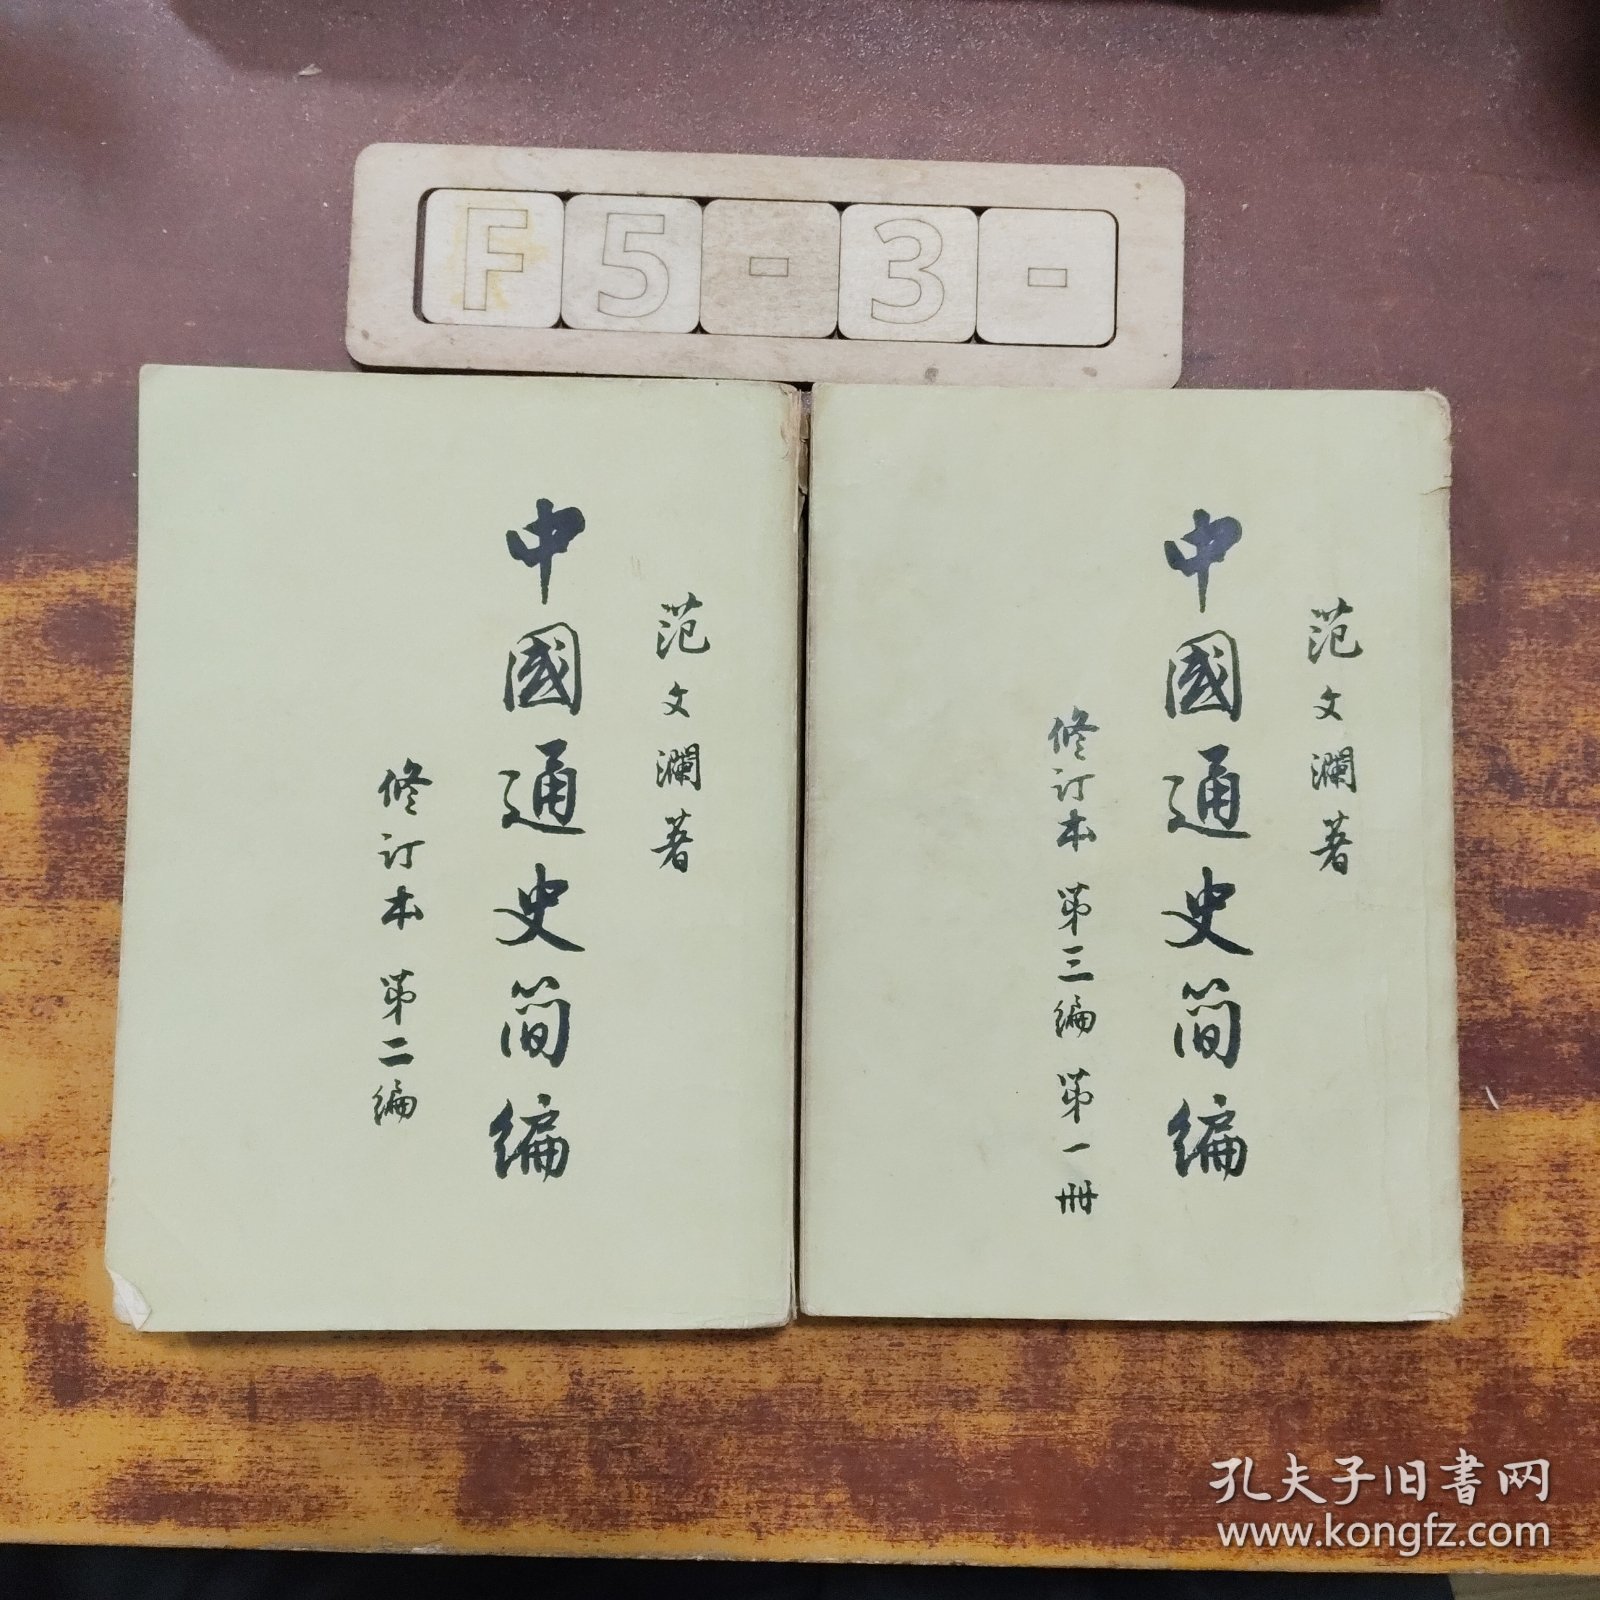 F5-3-
范文瀾著
中國通史简编
修订本 第二编
范文瀾著
中國通史简编
修订本 第三编 第一册
孔夫子旧書网
www.kongfz.com